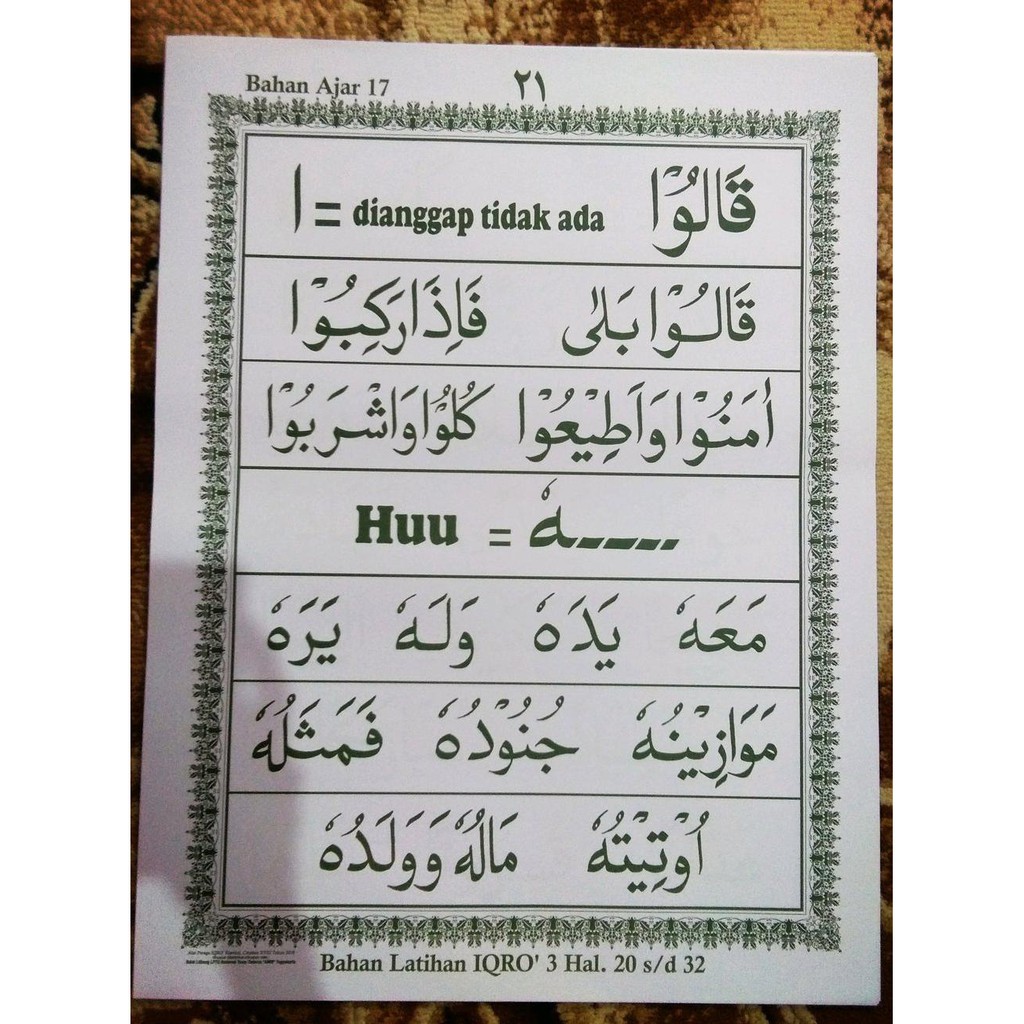 Bahan Ajar 17
٢١
قَالُوْا ا = dianggap tidak ada
قَالُوْا بَلٰى فَاِذَا رَكِبُوْا
اٰمَنُوْا وَاَطِيْعُوْا كُلُوْا وَاشْرَبُوْا
ـــهٗ = Huu
مَعَهٗ يَدَهٗ وَلَهٗ يَرَهٗ
مَوَازِيْنُهٗ جُنُوْدُهٗ فَمَثَلُهٗ
اُوْتِيْتُهٗ مَالُهٗ وَوَلَدُهٗ
Bahan Latihan IQRO' 3 Hal. 20 s/d 32